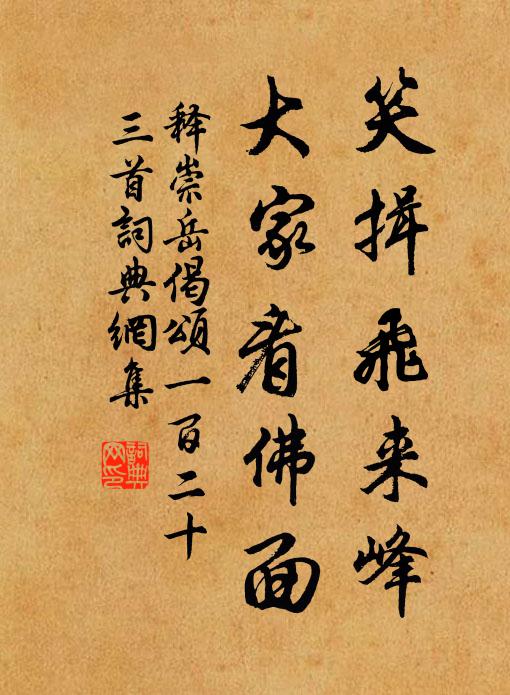 笑揖飛来峰
大家看佛面
释崇岳偈頌一百二十
三首詞典網集
詞典网印